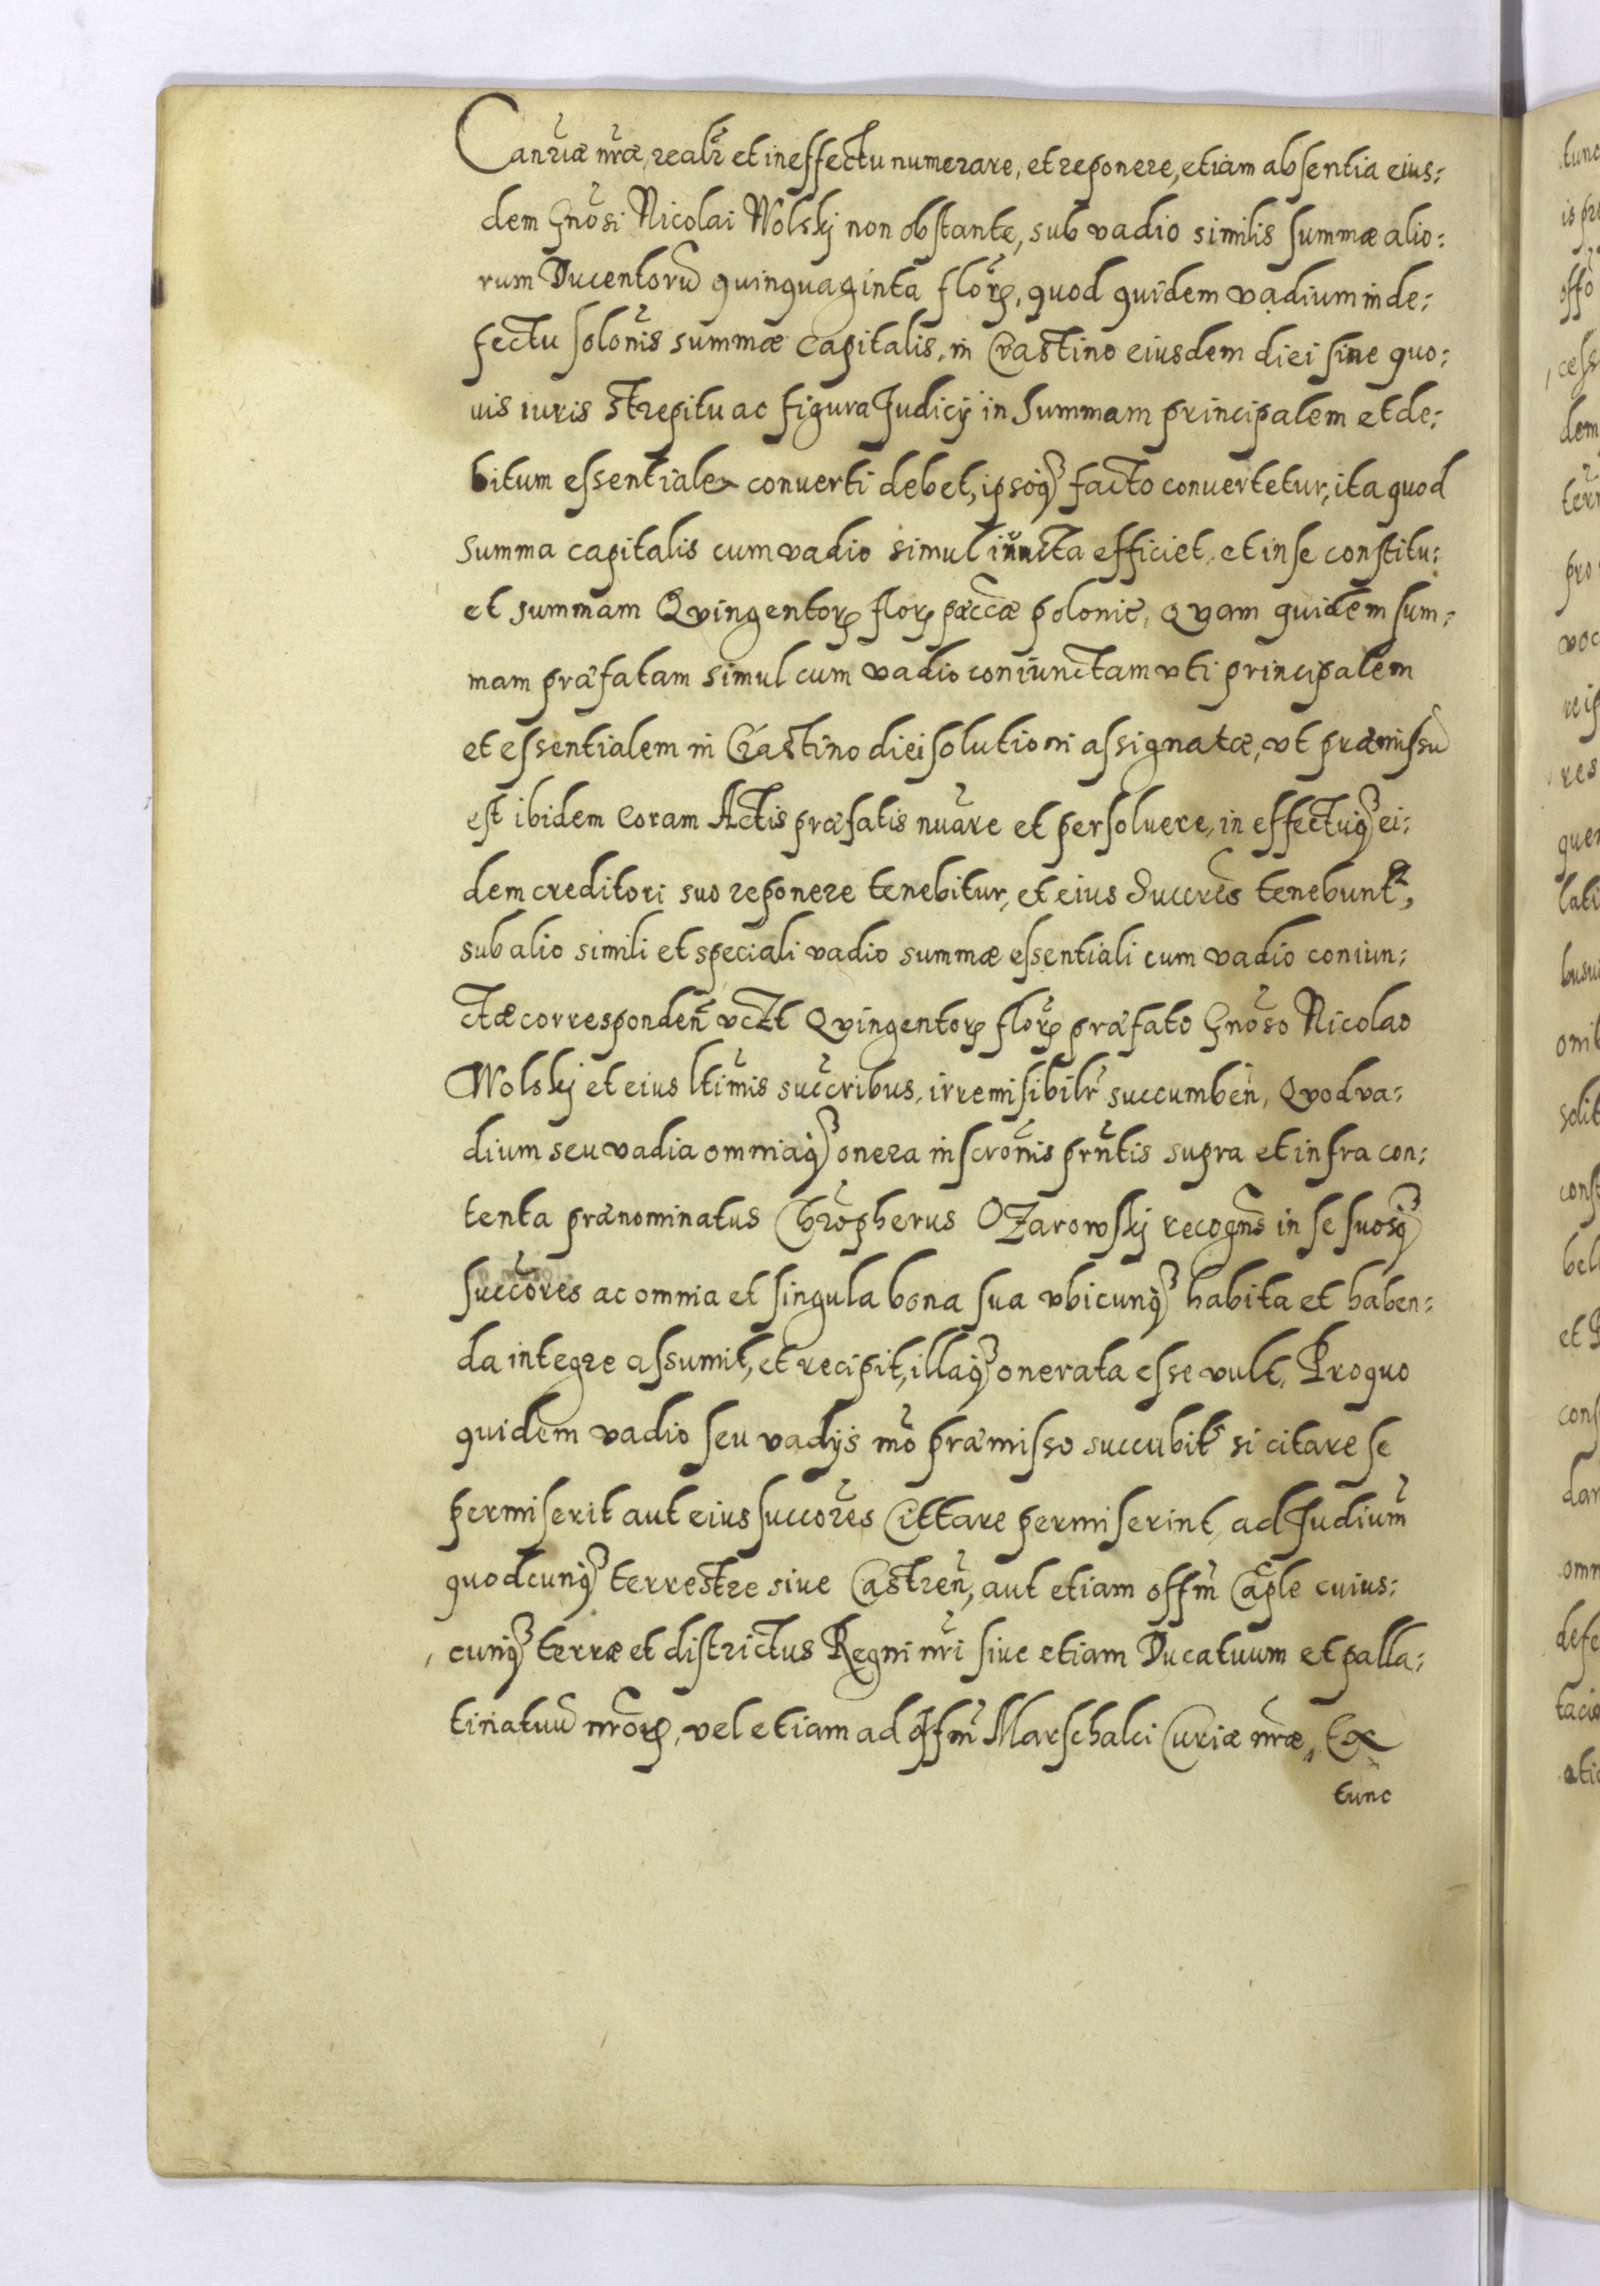 Canriæ nræ, realr et in effectu numerare, et reponere, etiam absentia eius:
dem Gnosi Nicolai Wolskj non obstante, sub vadio similis summæ alio:
rum Ducentorū quinquaginta florꝝ, quod quidem vadium in de:
fectu solonis summæ capitalis, in Crastino eiusdem diei sine quo:
uis iuris strepitu ac figura Judicÿ in Summam principalem et de:
bitum essentiale conuerti debet, ipsoqꝫ facto conuertetur, ita quod
Summa capitalis cum vadio simul iuncta efficiet, et in se constitu:
et summam Qvingentorꝝ florꝝ pæccæ polonie, Qvam quidem sum:
mam præfatam simul cum vadio coniunctam vti principalem
et essentialem in Crastino diei solutioni assignatæ, vt præmissū
est ibidem coram Actis præfatis nuare et persoluere, in effectuqꝫ ei:
dem creditori suo reponere tenebitur, et eius Succres tenebuntr,
sub alio simili et speciali vadio summæ essentiali cum vadio coniun:
ctæ corresponden̄ vczt Qvingentorꝝ florꝝ præfato Gnoso Nicolao
Wolskj et eius ltimis succribus, irremisibilr succumben̄, Qvod va:
dium seu vadia omniaqꝫ onera inscronis prntis supra et infra con:
tenta prænominatus Chropherus OZarowskj recogns in se suosqꝫ
succores ac omnia et singula bona sua vbicunqꝫ habita et haben:
da integre assumit, et recipit, illaqꝫ onerata esse vult, Pro quo
quidem vadio seu vadÿs mo præmisso succubit si citare se
permiserit aut eius succores Cittare permiserint, ad Judium
quodcunqꝫ terrestre siue Castren̄, aut etiam offm Caple cuius:
cunqꝫ terræ et districtus Regni nri siue etiam Ducatuum et palla:
tinatuū nrorꝝ, vel etiam ad Offm Marschalci Curiæ nræ, Ex
tunc